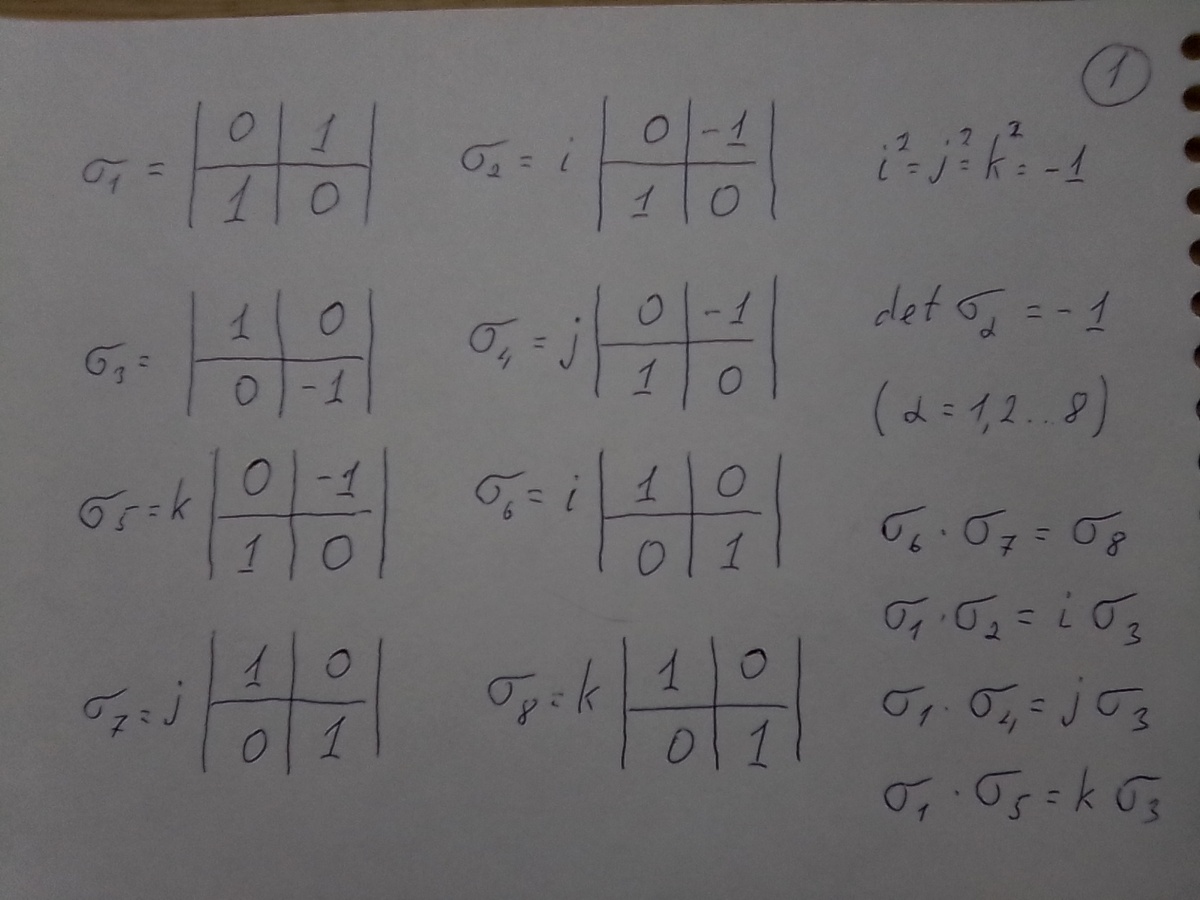 1
σ₁ = | 0 | 1 |
| 1 | 0 |
σ₂ = i | 0 | -1 |
| 1 | 0 |
i² = j² = k² = -1
σ₃ = | 1 | 0 |
| 0 | -1 |
σ₄ = j | 0 | -1 |
| 1 | 0 |
det σ_α = -1
(α = 1,2...8)
σ₅ = k | 0 | -1 |
| 1 | 0 |
σ₆ = i | 1 | 0 |
| 0 | 1 |
σ₆ · σ₇ = σ₈
σ₁ · σ₂ = i σ₃
σ₇ = j | 1 | 0 |
| 0 | 1 |
σ₈ = k | 1 | 0 |
| 0 | 1 |
σ₁ · σ₄ = j σ₃
σ₁ · σ₅ = k σ₃